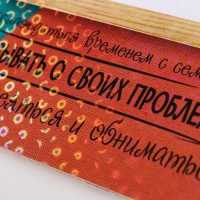 ться временем с сем
ывать о своих проблем
аться и обниматься